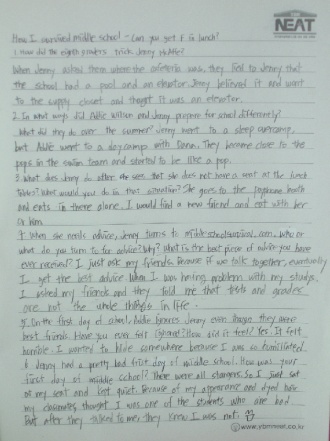 NEAT
How I survived middle school - Can you get F in lunch?
1. How did the eighth graders trick Jenny & Addie?
When Jenny asked them where the cafeteria was, they lied to Jenny that
the school had a pool and an elevator. Jenny believed it and went
to the supply closet and thought it was an elevator.
2. In what ways did Addie Wilson and Jenny prepare for school differently?
What did they do over the summer? Jenny went to a sleep over camp,
but Addie went to a day camp with Dana. They became close to the
pops in the swim team and started to be like a pop.
3. What does Jenny do after she sees that she does not have a seat at the lunch
table? What would you do in that situation? She goes to the payphone booth
and eats in there alone. I would find a new friend and eat with her
or him.
4. When she needs advice, Jenny turns to middle school survival.com. Who or
what do you turn to for advice? Why? What is the best piece of advice you have
ever received? I just ask my friends. Because if we talk together, eventually
I get the best advice. When I was having problem with my studys,
I asked my friends and they told me that tests and grades
are not the whole things in life.
5. On the first day of school, Addie ignores Jenny even though they were
best friends. Have you ever felt ignored? How did it feel? Yes. It felt
horrible. I wanted to hide somewhere because I was so humiliated.
6. Jenny had a pretty bad first day of middle school. How was your
first day of middle school? There were all strangers. So I just sat
of my seat and kept quiet. Because of my appearance and dyed hair
my classmates thought I was one of the students who are bad.
But after they talked to me, they knew I was not.
www.ybmneat.co.kr